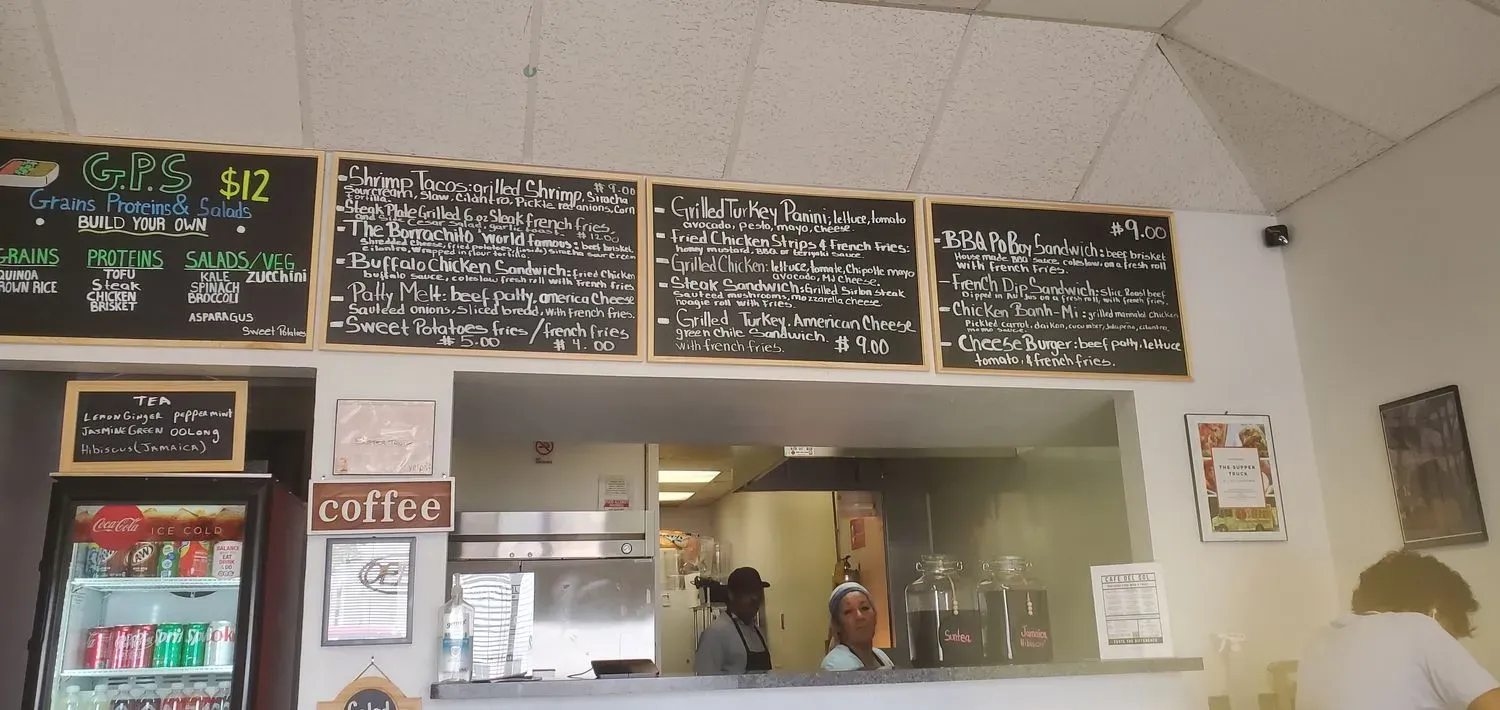 G.P.S
$12
Grains Proteins & Salads
BUILD YOUR OWN
GRAINS
QUINOA
ROWN RICE
PROTEINS
TOFU
Steak
CHICKEN
BRISKET
SALADS/VEG
KALE zucchini
SPINACH
BROCCOLI
ASPARAGUS
Sweet Potatoes
-Shrimp Tacos: grilled Shrimp, Siracha $9.00
sour cream, slaw, cilantro, Pickle red onions, Corn
tortilla.
-Steak Plate Grilled 6 oz Steak french fries,
and side cesar salad, garlic $12.00
-The Borrachito world famous: beef brisket
shredded cheese, fried potatoes (inside) siracha sour cream
cilantro, wrapped in flour tortilla.
-Buffalo Chicken Sandwich: fried Chicken
buffalo sauce, coleslaw fresh roll with French fries
-Patty Melt: beef patty, america Cheese
Sauteed onions, sliced bread, with French fries.
-Sweet Potatoes fries / french fries
$5.00 $4.00
- Grilled Turkey Panini; lettuce, tomato
avocado, pesto, mayo, cheese.
- Fried Chicken Strips & French Fries:
honey mustard, BBQ or teriyaki sauce.
- Grilled Chicken: lettuce, tomate, Chipotle mayo
avocado, MJ Cheese,
- Steak Sandwich: Grilled Sirlon Steak
Sauteed mushrooms, mozzarella cheese
hoagie roll with Fries.
- Grilled Turkey, American Cheese
green Chile Sandwich.
with french fries. $9.00
$9.00
-BBQ Po Boy Sandwich: beef brisket
House made BBQ sauce, coleslaw, on a fresh roll
with french fries.
- French Dip Sandwich: slice Roast beef
Dipped in Au Jus on a fresh roll, with french fries.
- Chicken Banh-Mi: grilled marinated Chicken
Pickled carrot, daikon, cucumber, Jalapeño, cilantro,
sauce.
- Cheese Burger: beef patty, lettuce
tomato, & french fries.
TEA
LEMON GINGER peppermint
JASMINE GREEN OOLong
Hibiscus (JAMAICA)
SUPPER TRUCK
yelp
coffee
Coca-Cola
ICE COLD
A&W
BALANCE
WHAT YOU
EAT
DRINK
& DO
Sprite
Coke
THE SUPPER
TRUCK
CAFE DEL SOL
TASTE THE DIFFERENCE
Suntea
Jamaica
Hibiscus